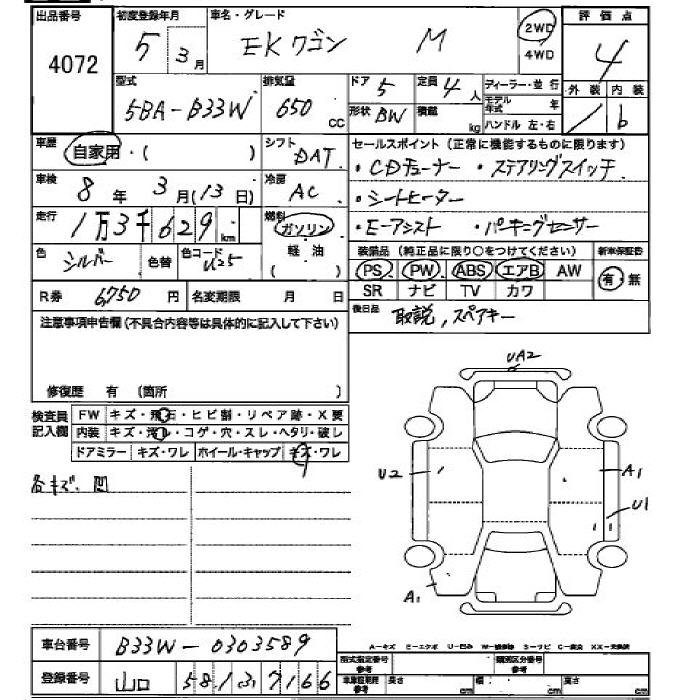 出品番号 初度登録年月 車名・グレード 評価点
4072 5 3月 EKワゴン M 2WD 4WD 4
型式 排気量 ドア 5 定員 4人 ディーラー・並行 外装 内装
5BA-B33W 650cc 形状 BW 積載 kg モデル年式 年 ハンドル 左・右 1 b
車歴 自家用・( ) シフト DAT セールスポイント(正常に機能するものに限ります)
・CDチューナー ・ステアリングスイッチ
車検 8年 3月(13日) 冷房 AC ・シートヒーター
走行 1万3千629km 燃料 ガソリン ・E-アシスト ・パーキングセンサー
色 シルバー 色替 色コード U25 軽油 ( ) 装備品(純正品に限り○をつけてください) 新車保証書
PS PW ABS エアB AW 有・無
R券 6750円 名変期限 月 日 SR ナビ TV カワ
注意事項申告欄(不具合内容等は具体的に記入して下さい) 後日品 取説,スペアキー
修復歴 有 (箇所 )
検査員記入欄 FW キズ・飛石・ヒビ割・リペア跡・X要
内装 キズ・汚れ・コゲ・穴・スレ・ヘタリ・破レ
ドアミラー キズ・ワレ ホイール・キャップ キズ・ワレ
各キズ、凹
UA2
U2 A1
U1
A1
車台番号 B33W-0303589 A-キズ E-エクボ U-凹み W-補修跡 S-サビ C-腐食 XX-交換済
型式指定番号 参考 類別区分番号 参考
登録番号 山口 581ふ7166 車庫証明用 参考 長さ cm 幅 cm 高さ cm